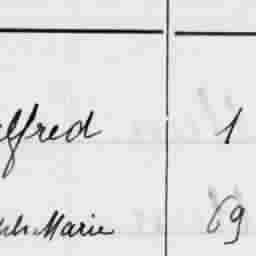 lfred 1
Marie 69